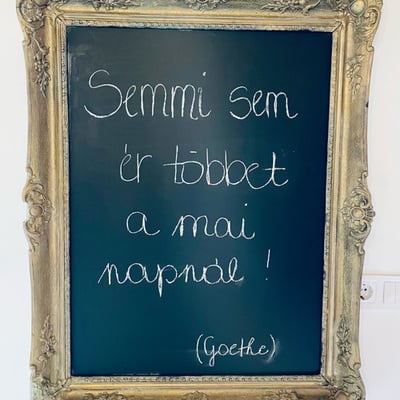 Semmi sem
ér többet
a mai
napnál!
(Goethe)